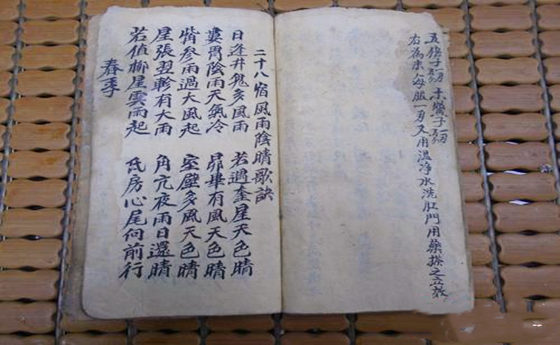 五倍子 木鱉子
右為末每服一 又用温净水洗肛門用藥搽之立
二十八宿風雨陰晴歌訣
日逢井鬼多風雨 若遇奎星天色晴
婁胃陰雨天氣冷 昴畢有風天色晴
觜參雨過大風起 室壁多風天色晴
張翌軫有大雨 角亢夜雨日還晴
若值柳星雲雨起 氐房心尾向前行
春季